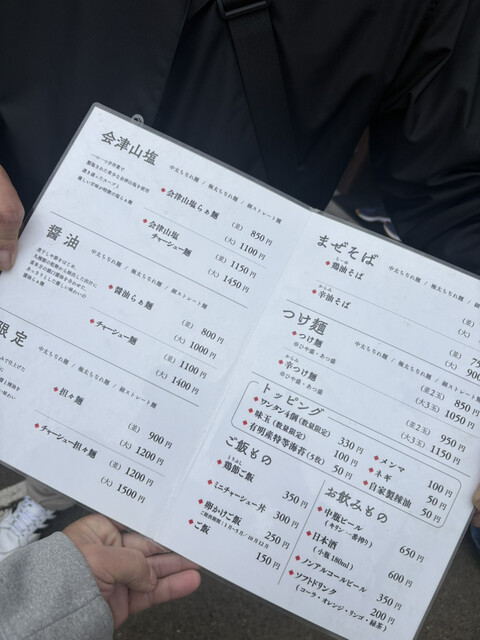 会津山塩
中太ちぢれ麺 / 極太ちぢれ麺 / 細ストレート麺
◆会津山塩らぁ麺
(並) 850円
(大) 1100円
◆会津山塩
チャーシュー麺
(並) 1150円
(大) 1450円
醤油
中太ちぢれ麺 / 極太ちぢれ麺 / 細ストレート麺
◆醤油らぁ麺
(並) 800円
(大) 1000円
◆チャーシュー麺
(並) 1100円
(大) 1400円
限定
中太ちぢれ麺 / 極太ちぢれ麺 / 細ストレート麺
◆担々麺
(並) 900円
(大) 1200円
◆チャーシュー担々麺
(並) 1200円
(大) 1500円
まぜそば
中太ちぢれ麺 / 極太ちぢれ麺 / 細
◆鶏油そば
(並)
(大)
からみ
◆辛油そば
(並) 75
(大) 900
つけ麺
中太ちぢれ麺 / 極太ちぢれ麺 / 細ストレート麺
◆つけ麺
※ひや盛・あつ盛
(並2玉) 850円
(大3玉) 1050円
からみ
◆辛つけ麺
※ひや盛・あつ盛
(並2玉) 950円
(大3玉) 1150円
トッピング
◆ワンタン4個(数量限定) 330円
◆味玉(数量限定) 100円
◆有明産特等海苔(5枚) 50円
◆メンマ 100円
◆ネギ 50円
◆自家製辣油 50円
ご飯もの
◆鶏節ご飯 350円
◆ミニチャーシュー丼 300円
◆卵かけご飯 250円
◆ご飯 150円
お飲みもの
◆中瓶ビール
(キリン一番搾り) 650円
◆日本酒
(小瓶180ml) 600円
◆ノンアルコールビール 350円
◆ソフトドリンク 200円
(コーラ・オレンジ・リンゴ・緑茶)